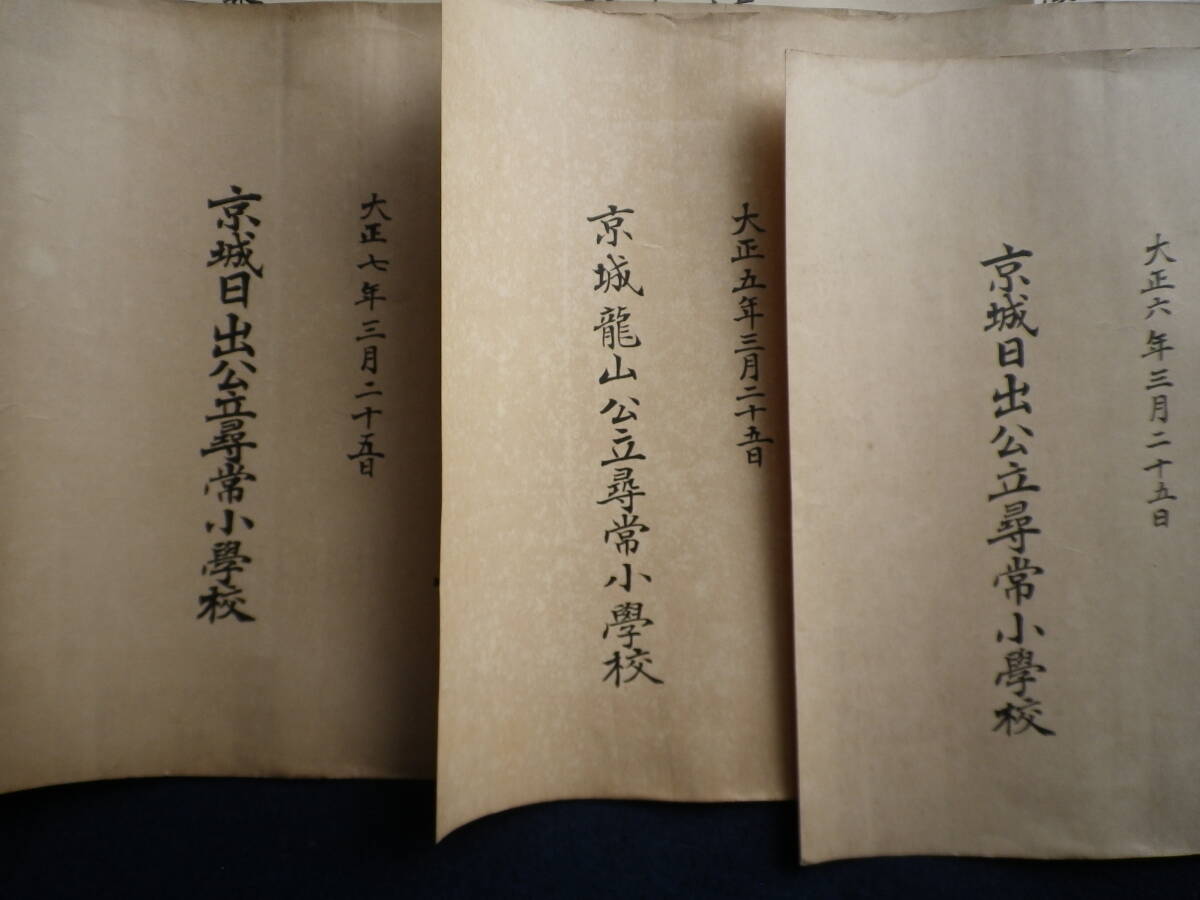 大正六年三月二十五日
京城日出公立尋常小學校
大正五年三月二十五日
京城龍山公立尋常小學校
大正七年三月二十五日
京城日出公立尋常小學校